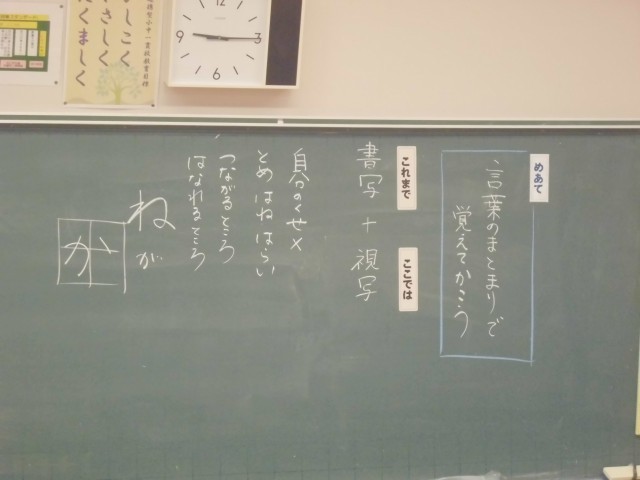 めあて
言葉のまとまりで
覚えてかこう
これまで
書写
+
ここでは
視写
自分のくせ×
とめ はね はらい
つながるところ
はなれるところ
ね
が
か
しこく
さしく
くましく
9
12
3
6